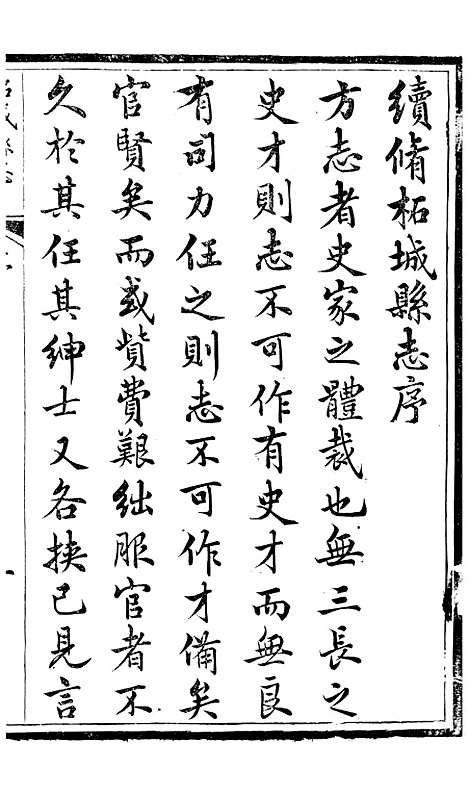 續脩柘城縣志序
方志者史家之體裁也無三長之
史才則志不可作有史才而無良
有司力任之則志不可作才備矣
官賢矣而或貲費艱絀服官者不
久於其任其紳士又各挾已見言